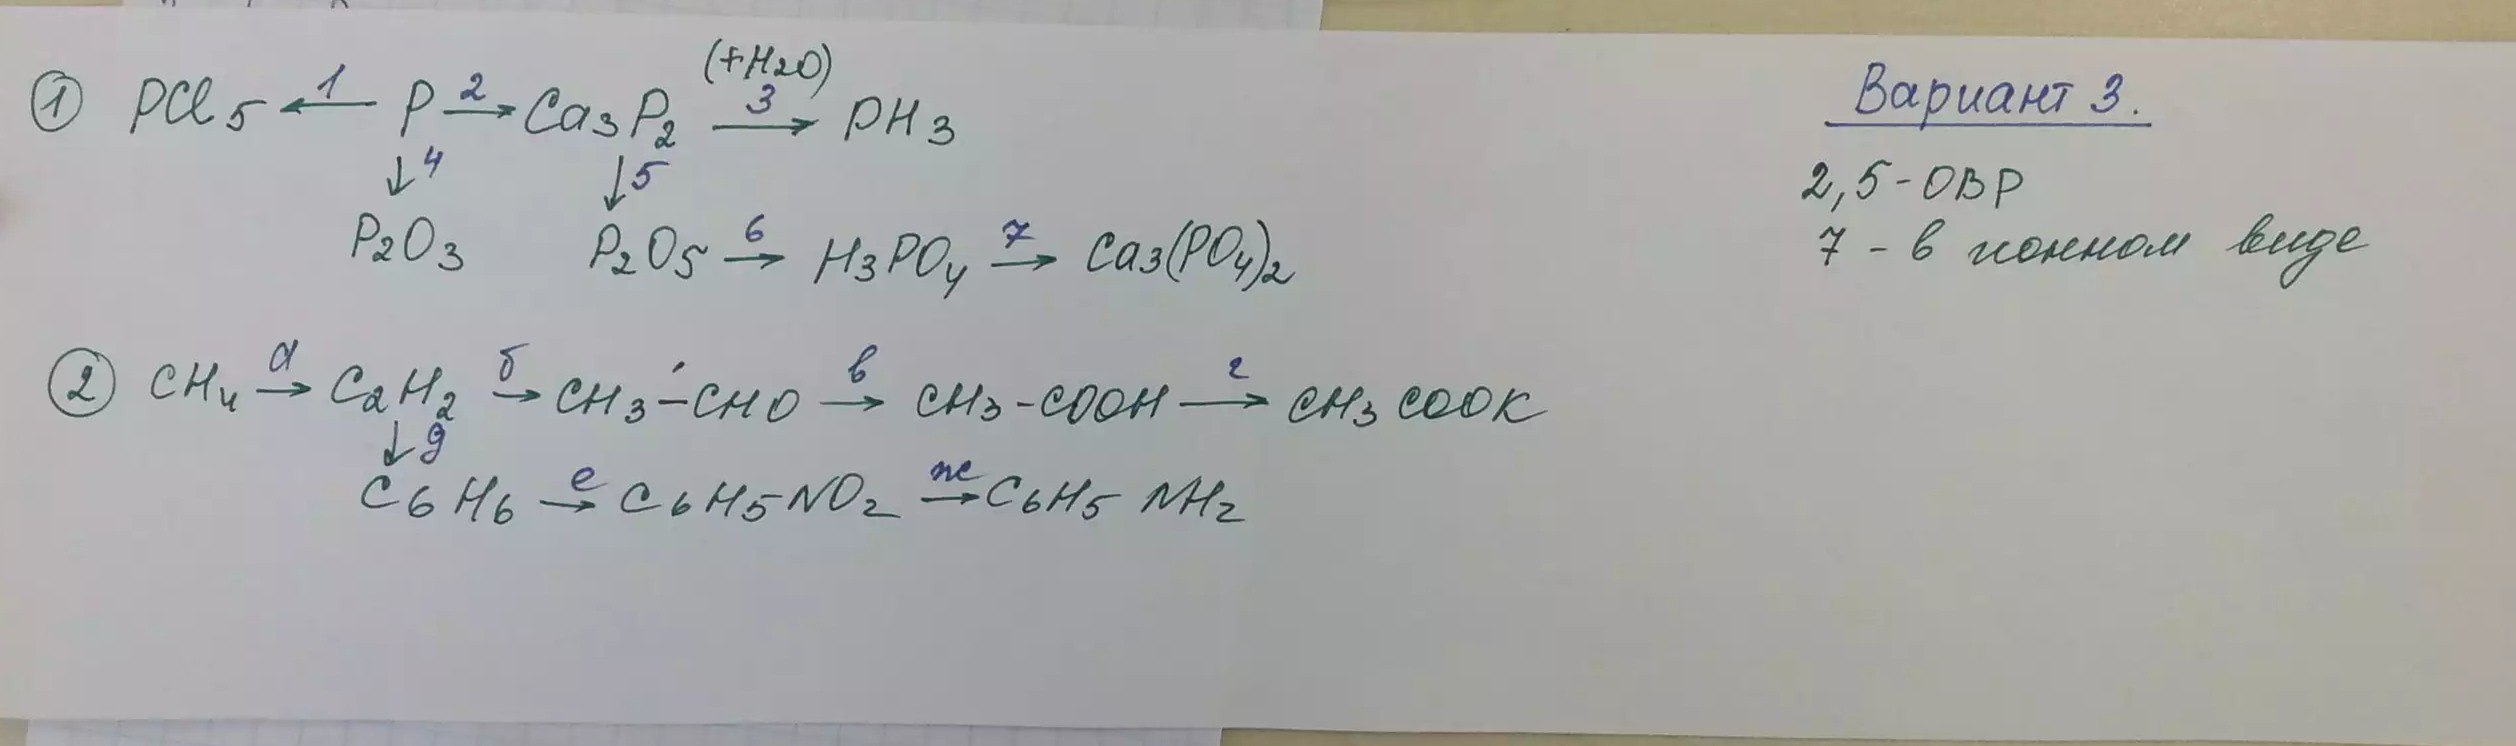 (+H2O)
① PCl5 ←1 P 2→ Ca3P2 3→ PH3
↓4 ↓5
P2O3 P2O5 6→ H3PO4 7→ Ca3(PO4)2
Вариант 3.
2,5-ОВР
7 - в ионном виде
② CH4 а→ C2H2 б→ CH3-CHO в→ CH3-COOH г→ CH3COOK
↓д
C6H6 е→ C6H5NO2 ж→ C6H5NH2